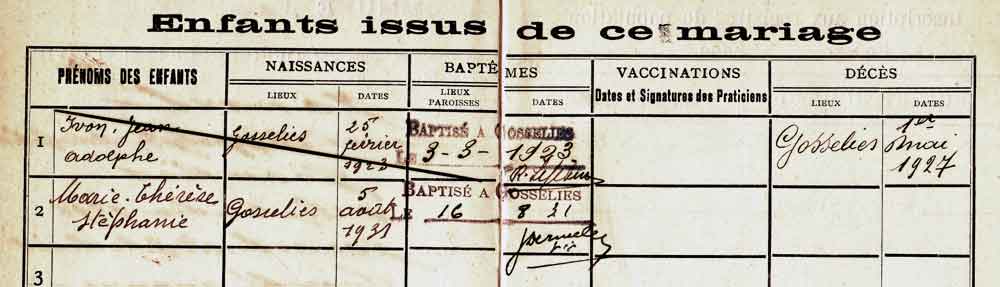 Enfants issus de ce mariage
PRÉNOMS DES ENFANTS
NAISSANCES
BAPTÊMES
VACCINATIONS
DÉCÈS
LIEUX
DATES
LIEUX
PAROISSES
DATES
Dates et Signatures des Praticiens
LIEUX
DATES
1
Yvon. Jean
adolphe
Gosselies
25
février
1923
BAPTISÉ A GOSSELIES
LE 3-3- 1923
Gosselies
1er
mai
1927
2
Marie-Thérèse
Stéphanie
Gosselies
5
août
1931
BAPTISÉ A GOSSELIES
LE 16 8 31
3